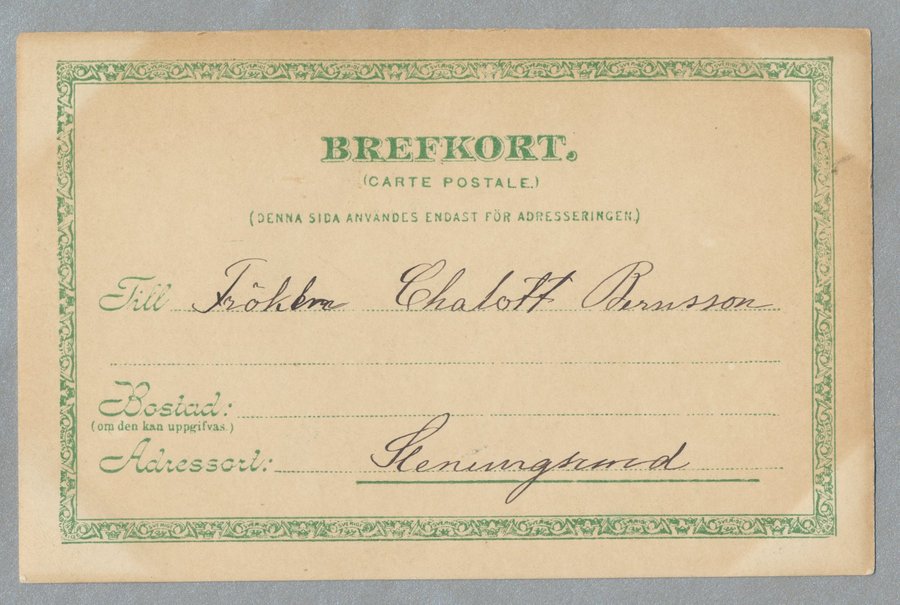 BREFKORT.
(CARTE POSTALE.)
(DENNA SIDA ANVANDES ENDAST FÖR ADRESSERINGEN.)
Till Fröken Chalott Bernsson
Bostad:
(om den kan uppgifvas.)
Adressort: Stenungsund